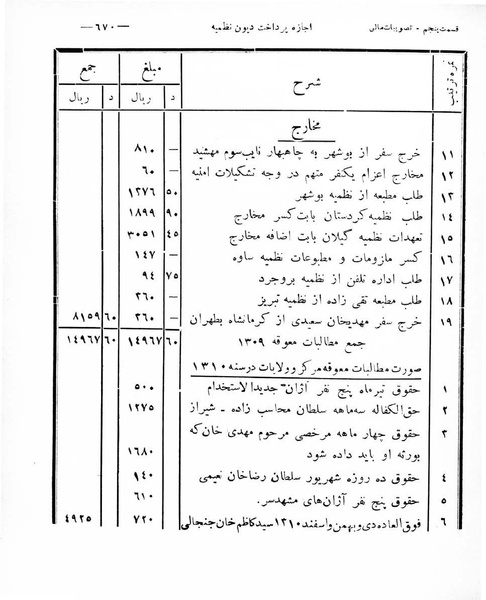 قسمت پنجم - تصویبات مالی اجازه پرداخت دیون نظمیه —۶۷۰—
نمره ترتیب شرح مبلغ جمع
د ریال د ریال
مخارج
۱۱ خرج سفر از بوشهر به چاهبهار نایب سوم مهشید — ۸۱۰
۱۲ مخارج اعزام یکنفر متهم در وجه تشکیلات امنیه — ۶۰
۱۳ طلب مطبعه از نظمیه بوشهر ۵۰ ۱۲۷۶
۱۴ طلب نظمیه کردستان بابت کسر مخارج ۹۰ ۱۸۹۹
۱۵ تعهدات نظمیه گیلان بابت اضافه مخارج ۴۵ ۳۰۵۱
۱۶ کسر ملزومات و مطبوعات نظمیه ساوه — ۱۴۷
۱۷ طلب اداره تلفن از نظمیه بروجرد ۷۵ ۹۴
۱۸ طلب مطبعه تقی زاده از نظمیه تبریز — ۲۶۰
۱۹ خرج سفر مهدیخان سعیدی از کرمانشاه بطهران — ۲۶۰ ۶۰ ۸۱۵۹
جمع مطالبات معوقه ۱۳۰۹ ۶۰ ۱۴۹۶۷ ۶۰ ۱۴۹۶۷
صورت مطالبات معوقه مرکز و ولایات در سنه ۱۳۱۰
۱ حقوق تیرماه پنج نفر آژان جدید الاستخدام ۵۰۰
۲ حق الکفاله سه ماهه سلطان محاسب زاده - شیراز ۱۲۷۵
۳ حقوق چهار ماهه مرخصی مرحوم مهدی خان که
بورثه او باید داده شود ۱۶۸۰
۴ حقوق ده روزه شهریور سلطان رضاخان نعیمی ۱۴۰
۵ حقوق پنج نفر آژان‌های مشهدسر. ۶۱۰
۶ فوق العاده دی و بهمن و اسفند ۱۳۱۰ سید کاظم خان جنجالی ۷۲۰ ۴۹۲۵